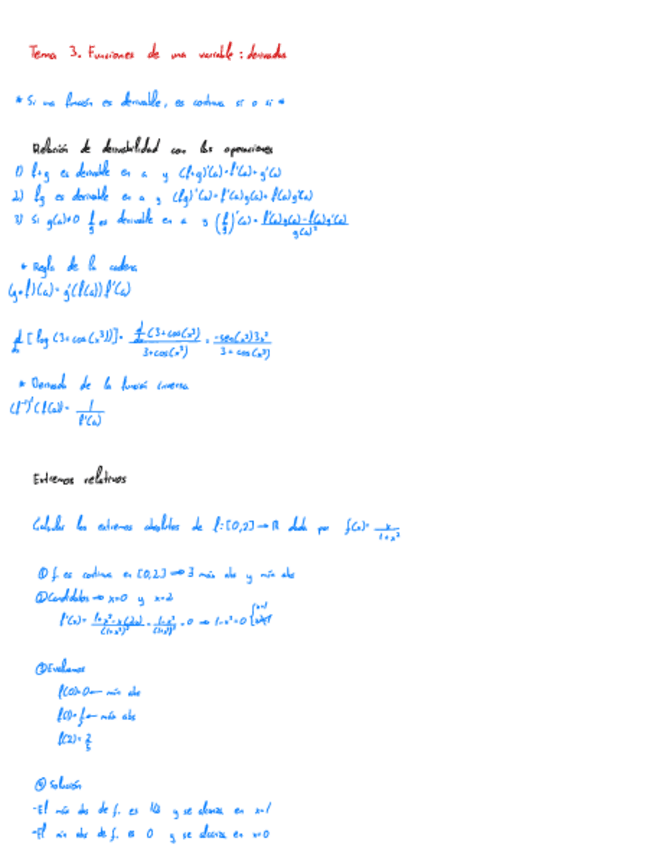 Tema 3. Funciones de una variable: derivadas
* Si una función es derivable, es continua si o si *
Relación de derivabilidad con las operaciones
1) f+g es derivable en a y (f+g)'(a)=f'(a)+g'(a)
2) fg es derivable en a y (fg)'(a)=f'(a)g(a)+f(a)g'(a)
3) Si g(a)≠0 f/g es derivable en a y (f/g)'(a)= f'(a)g(a)-f(a)g'(a) / g(a)²
* Regla de la cadena
(g∘f)'(a)=g'(f(a))f'(a)
d/dx [log(3+cos(x³))]= d/dx(3+cos(x³)) / 3+cos(x³) = -sen(x³)3x² / 3+cos(x³)
* Derivada de la función inversa
(f⁻¹)'(f(a))= 1 / f'(a)
Extremos relativos
Calcular los extremos absolutos de f:[0,2]→R dada por f(x)= x / 1+x²
① f es continua en [0,2] ⇒ ∃ máx abs y mín abs
② Candidatos → x=0 y x=2
f'(x)= 1+x²-x(2x) / (1+x²)² = 1-x² / (1+x²)² = 0 ⇒ 1-x²=0 { x=1
③ Evaluamos
f(0)=0 ← mín abs
f(1)=1/2 ← máx abs
f(2)= 2/5
④ Solución
-El máx abs de f. es 1/2 y se alcanza en x=1
-El mín abs de f. es 0 y se alcanza en x=0